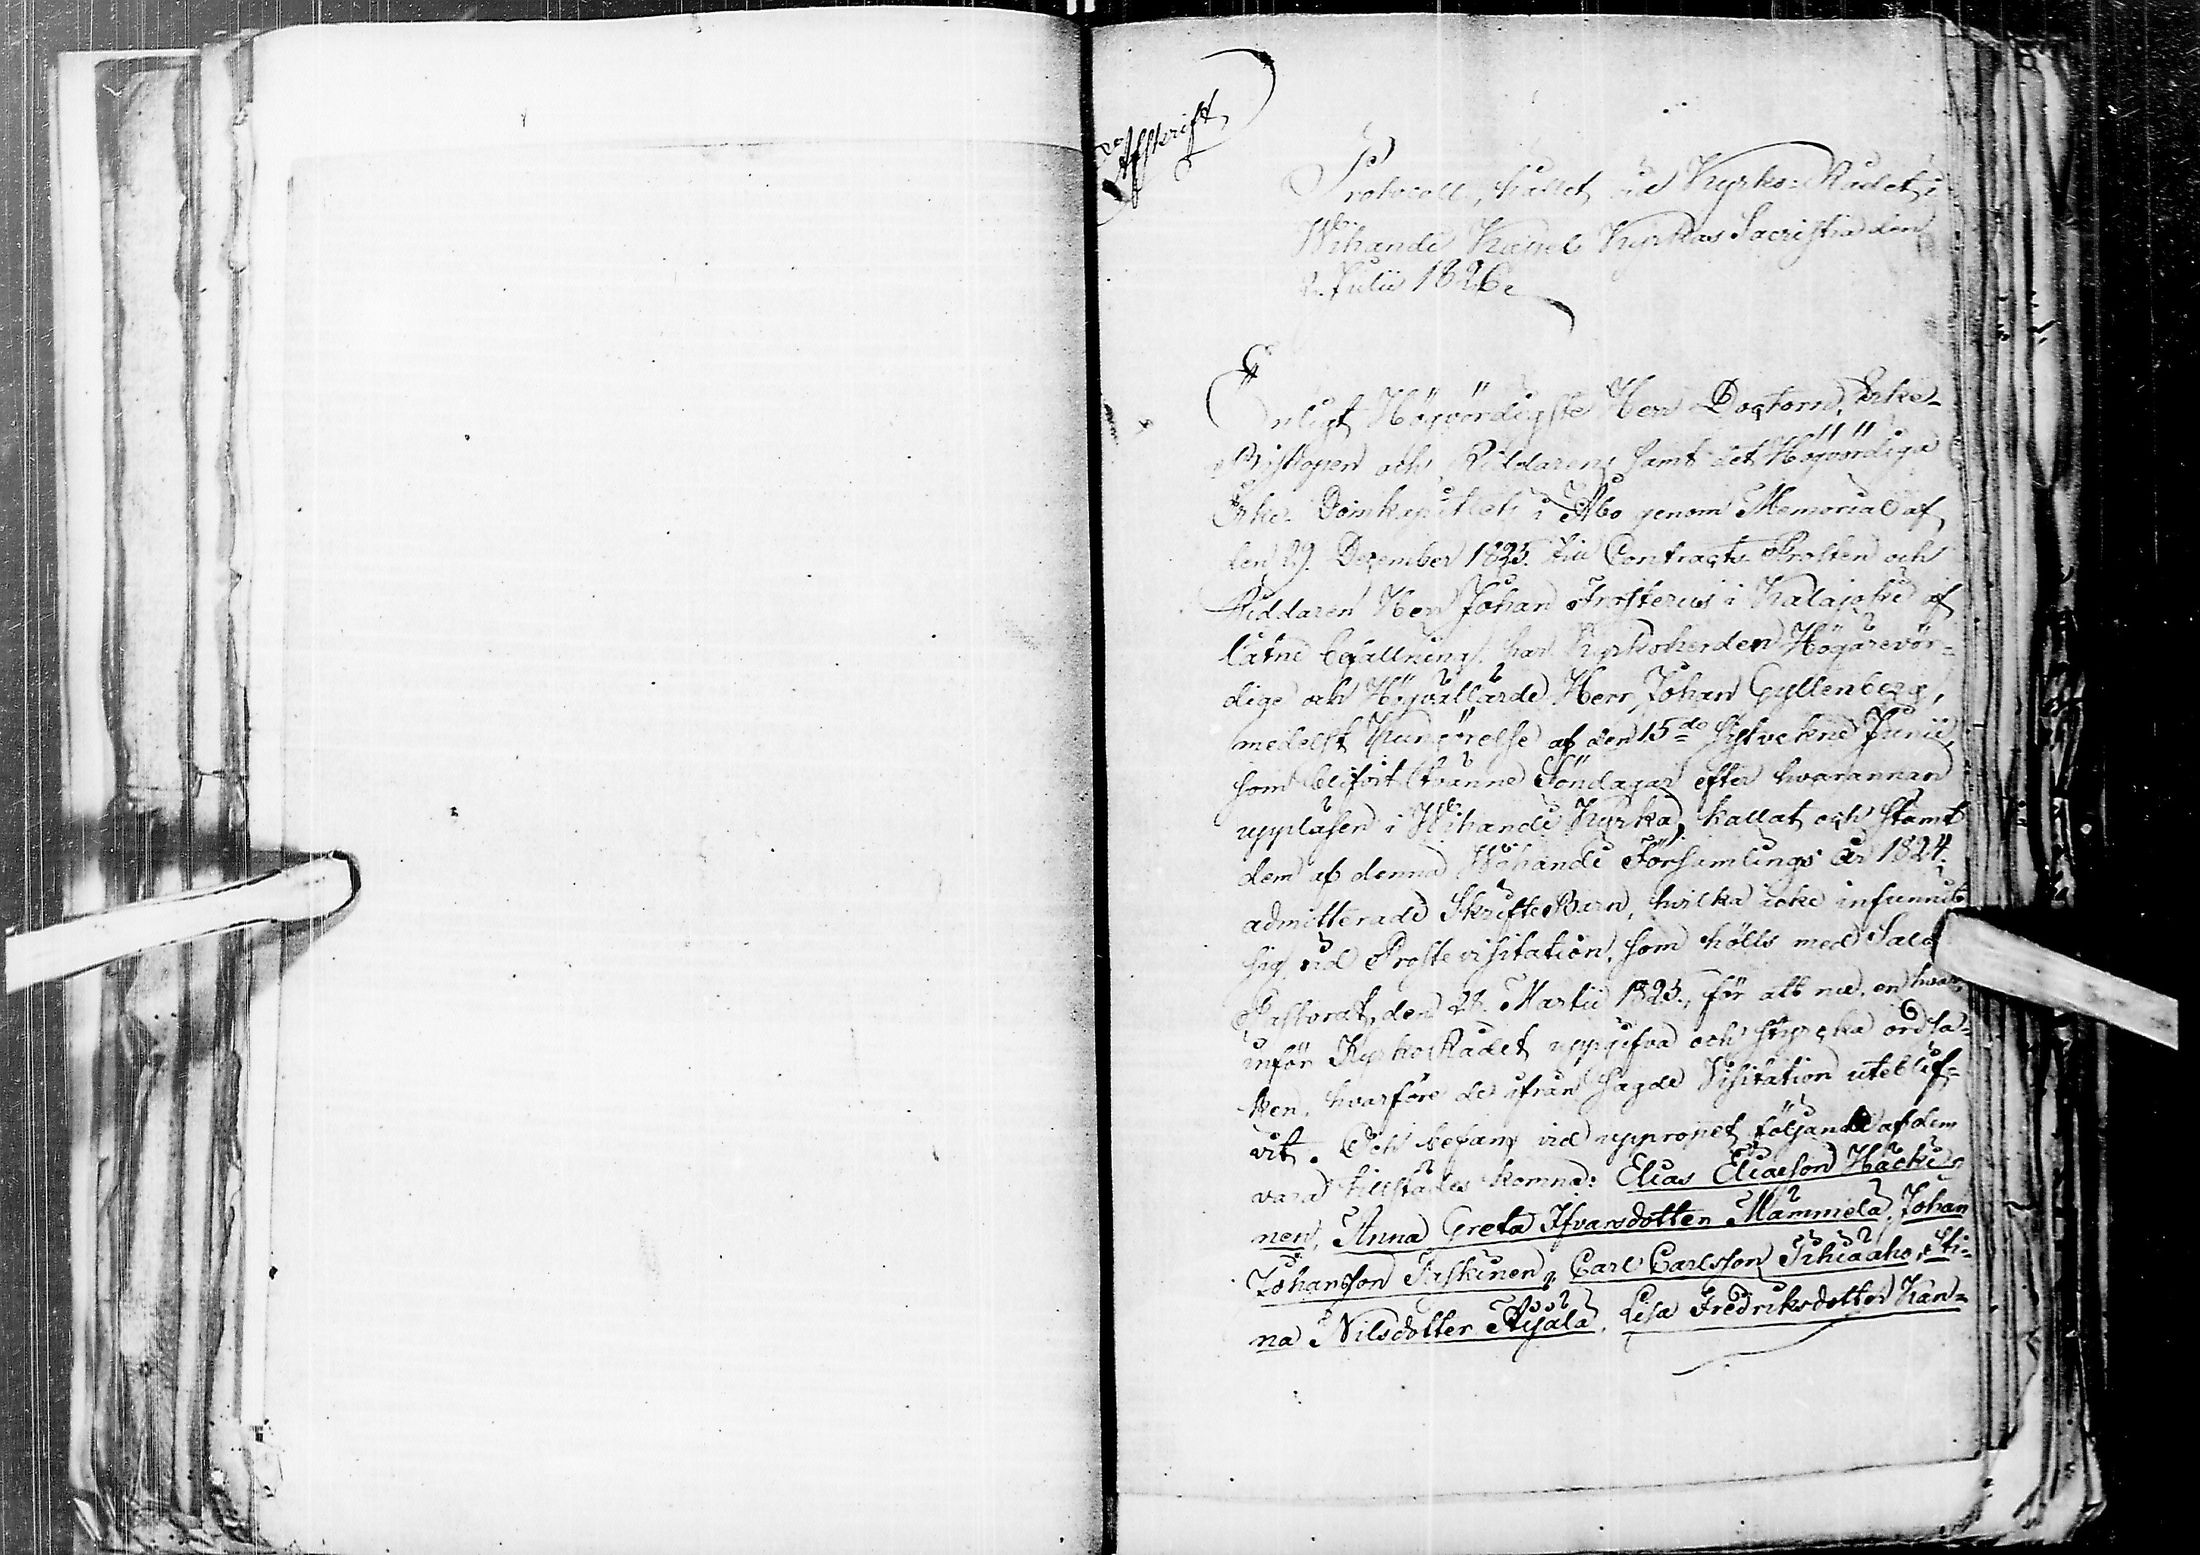 Afskrift
Protocoll, hållet vid Kyrko-Rådet i
Wihandi Kapell Kyrkas Sacristia den
2 Julii 1826.
Enligt Högvördigste Herr Doctorn, Erke-
Biskopen och Riddarens samt det Högvördiga
Erke Domkapitlets i Åbo genom Memorial af
den 29. December 1825. till Contracts Prosten och
Riddaren Herr Johan Frosterus i Kalajoki af
låtne befallning, har Kyrkoherden Högärevör-
dige och Höglärde Herr Johan Gyllenberg,
medelst Kungörelse af den 15de sistvekne Junii,
som blifvit tvänne Söndagar efter hvarannan
uppläsen i Wihandi Kyrka, kallat och stämt
dem af denna Wihandi Församlings år 1824.
admitterade Skrifte Barn, hvilka icke infunnit
sig vid Prostevisitation, som hölls med Salo
Pastorat, den 28. Martii 1825., för att nu, en hvar
inför KyrkoRådet uppgifva och styrcka ordsa-
ken, hvarföre de ifrån sagde Visitation uteblif-
vit. Och befans vid uppropet följande af dem
vara tillstädes komna: Elias Eliasson Häcki-
nen, Anna Greta Ifvarsdotter Mämmelä, Johan
Johansson Taskinen, Carl Carlsson Pihlaaho, Sti-
na Nilsdotter Äijälä, Lisa Fredriksdotter Kan-